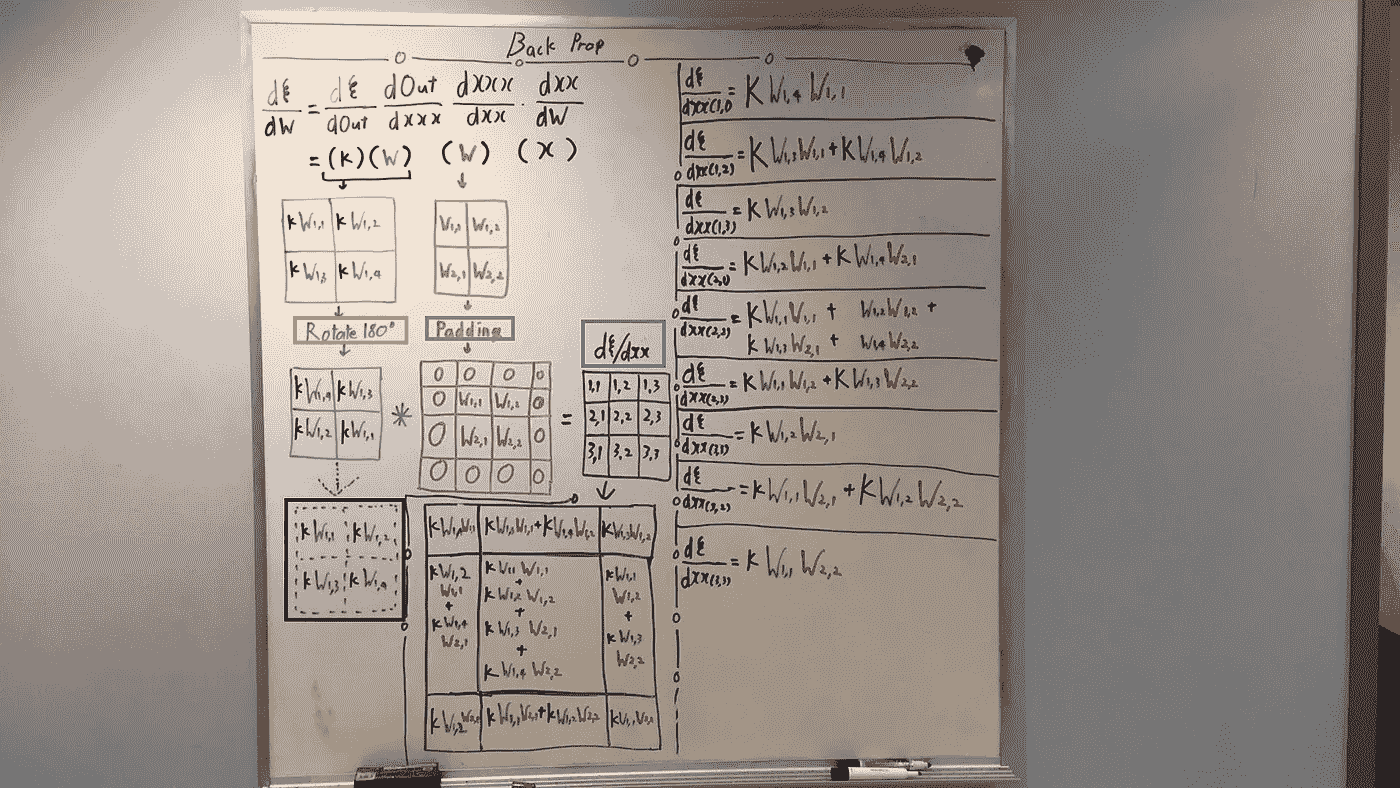 Back Prop
dξ/dW = dξ/dOut dOut/dxxx dxxx/dxx · dxx/dW
= (K)(W) (W) (x)
KW1,1 KW1,2
KW1,3 KW1,4
W1,1 W1,2
W2,1 W2,2
Rotate 180°
Padding
dξ/dxx
KW1,4 KW1,3
KW1,2 KW1,1
*
0 0 0 0
0 W1,1 W1,2 0
0 W2,1 W2,2 0
0 0 0 0
=
1,1 1,2 1,3
2,1 2,2 2,3
3,1 3,2 3,3
KW1,1 KW1,2
KW1,3 KW1,4
KW1,4W1,1
KW1,3W1,1+KW1,4W1,2
KW1,3W1,2
KW1,2
W1,1
+
KW1,4
W2,1
KW1,1 W1,1
+
KW1,2 W1,2
+
KW1,3 W2,1
+
KW1,4 W2,2
KW1,1
W1,2
+
KW1,3
W2,2
KW1,2W2,1
KW1,1W2,1+KW1,2W2,2
KW1,1W2,2
dξ/dxx(1,1) = KW1,4 W1,1
dξ/dxx(1,2) = KW1,3W1,1+KW1,4W1,2
dξ/dxx(1,3) = KW1,3W1,2
dξ/dxx(2,1) = KW1,2W1,1 + KW1,4W2,1
dξ/dxx(2,2) = KW1,1W1,1 + W1,2W1,2 +
KW1,3W2,1 + W1,4W2,2
dξ/dxx(2,3) = KW1,1W1,2 + KW1,3W2,2
dξ/dxx(3,1) = KW1,2W2,1
dξ/dxx(3,2) = KW1,1W2,1 + KW1,2W2,2
dξ/dxx(3,3) = KW1,1 W2,2